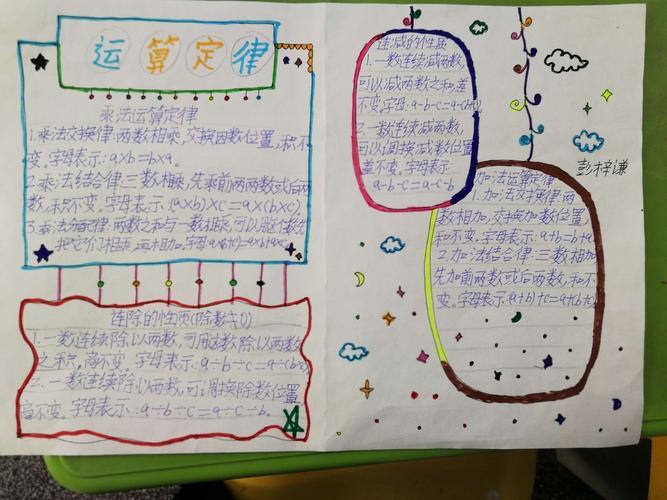 运算定律
乘法运算定律
1.乘法交换律:两数相乘,交换因数位置,积不
变。字母表示:a×b=b×a。
2.乘法结合律:三数相乘,先乘前两数或后两
数,积不变。字母表示:(a×b)×c=a×(b×c)
3.乘法分配律:两数之和与一数相乘,可以
把它们相乘,再相加。字母
连除的性质(除数≠0)
1.一数连续除以两数,可用这数除以两数
之积,商不变。字母表示:a÷b÷c=a÷(b×c)
2.一数连续除以两数,可以调换除数位置,
商不变。字母表示:a÷b÷c=a÷c÷b。
连减的性质
1.一数连续减两数,
可以减两数之和,差
不变,字母:a-b-c=a-(b+c)
2.一数连续减两数,
可以调换减数位置,
差不变。字母表示:
a-b-c=a-c-b
彭梓谦
加法运算定律
1.加法交换律:两
数相加,交换加数位置,
和不变。字母表示:a+b=b+a
2.加法结合律:三数相加
先加前两数或后两数,和不
变。字母表示:(a+b)+c=a+(b+c)